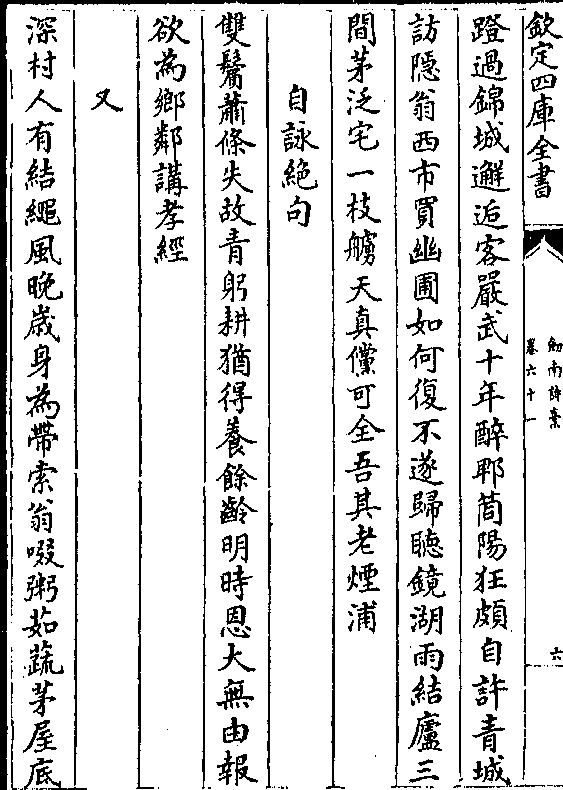 欽定四庫全書
劍南詩藁
卷六十一
六
蹬過錦城邂逅客嚴武十年醉郫筒陽狂頗自許青城
訪隠翁西市買幽圃如何復不遂歸聴鏡湖雨結廬三
間茅泛宅一枝艣天真儻可全吾其老煙浦
自詠絶句
雙鬢蕭條失故青躬耕猶得養餘齡明時恩大無由報
欲為鄉鄰講孝經
又
深村人有結繩風晚歳身為帶索翁啜粥茹蔬茅屋底